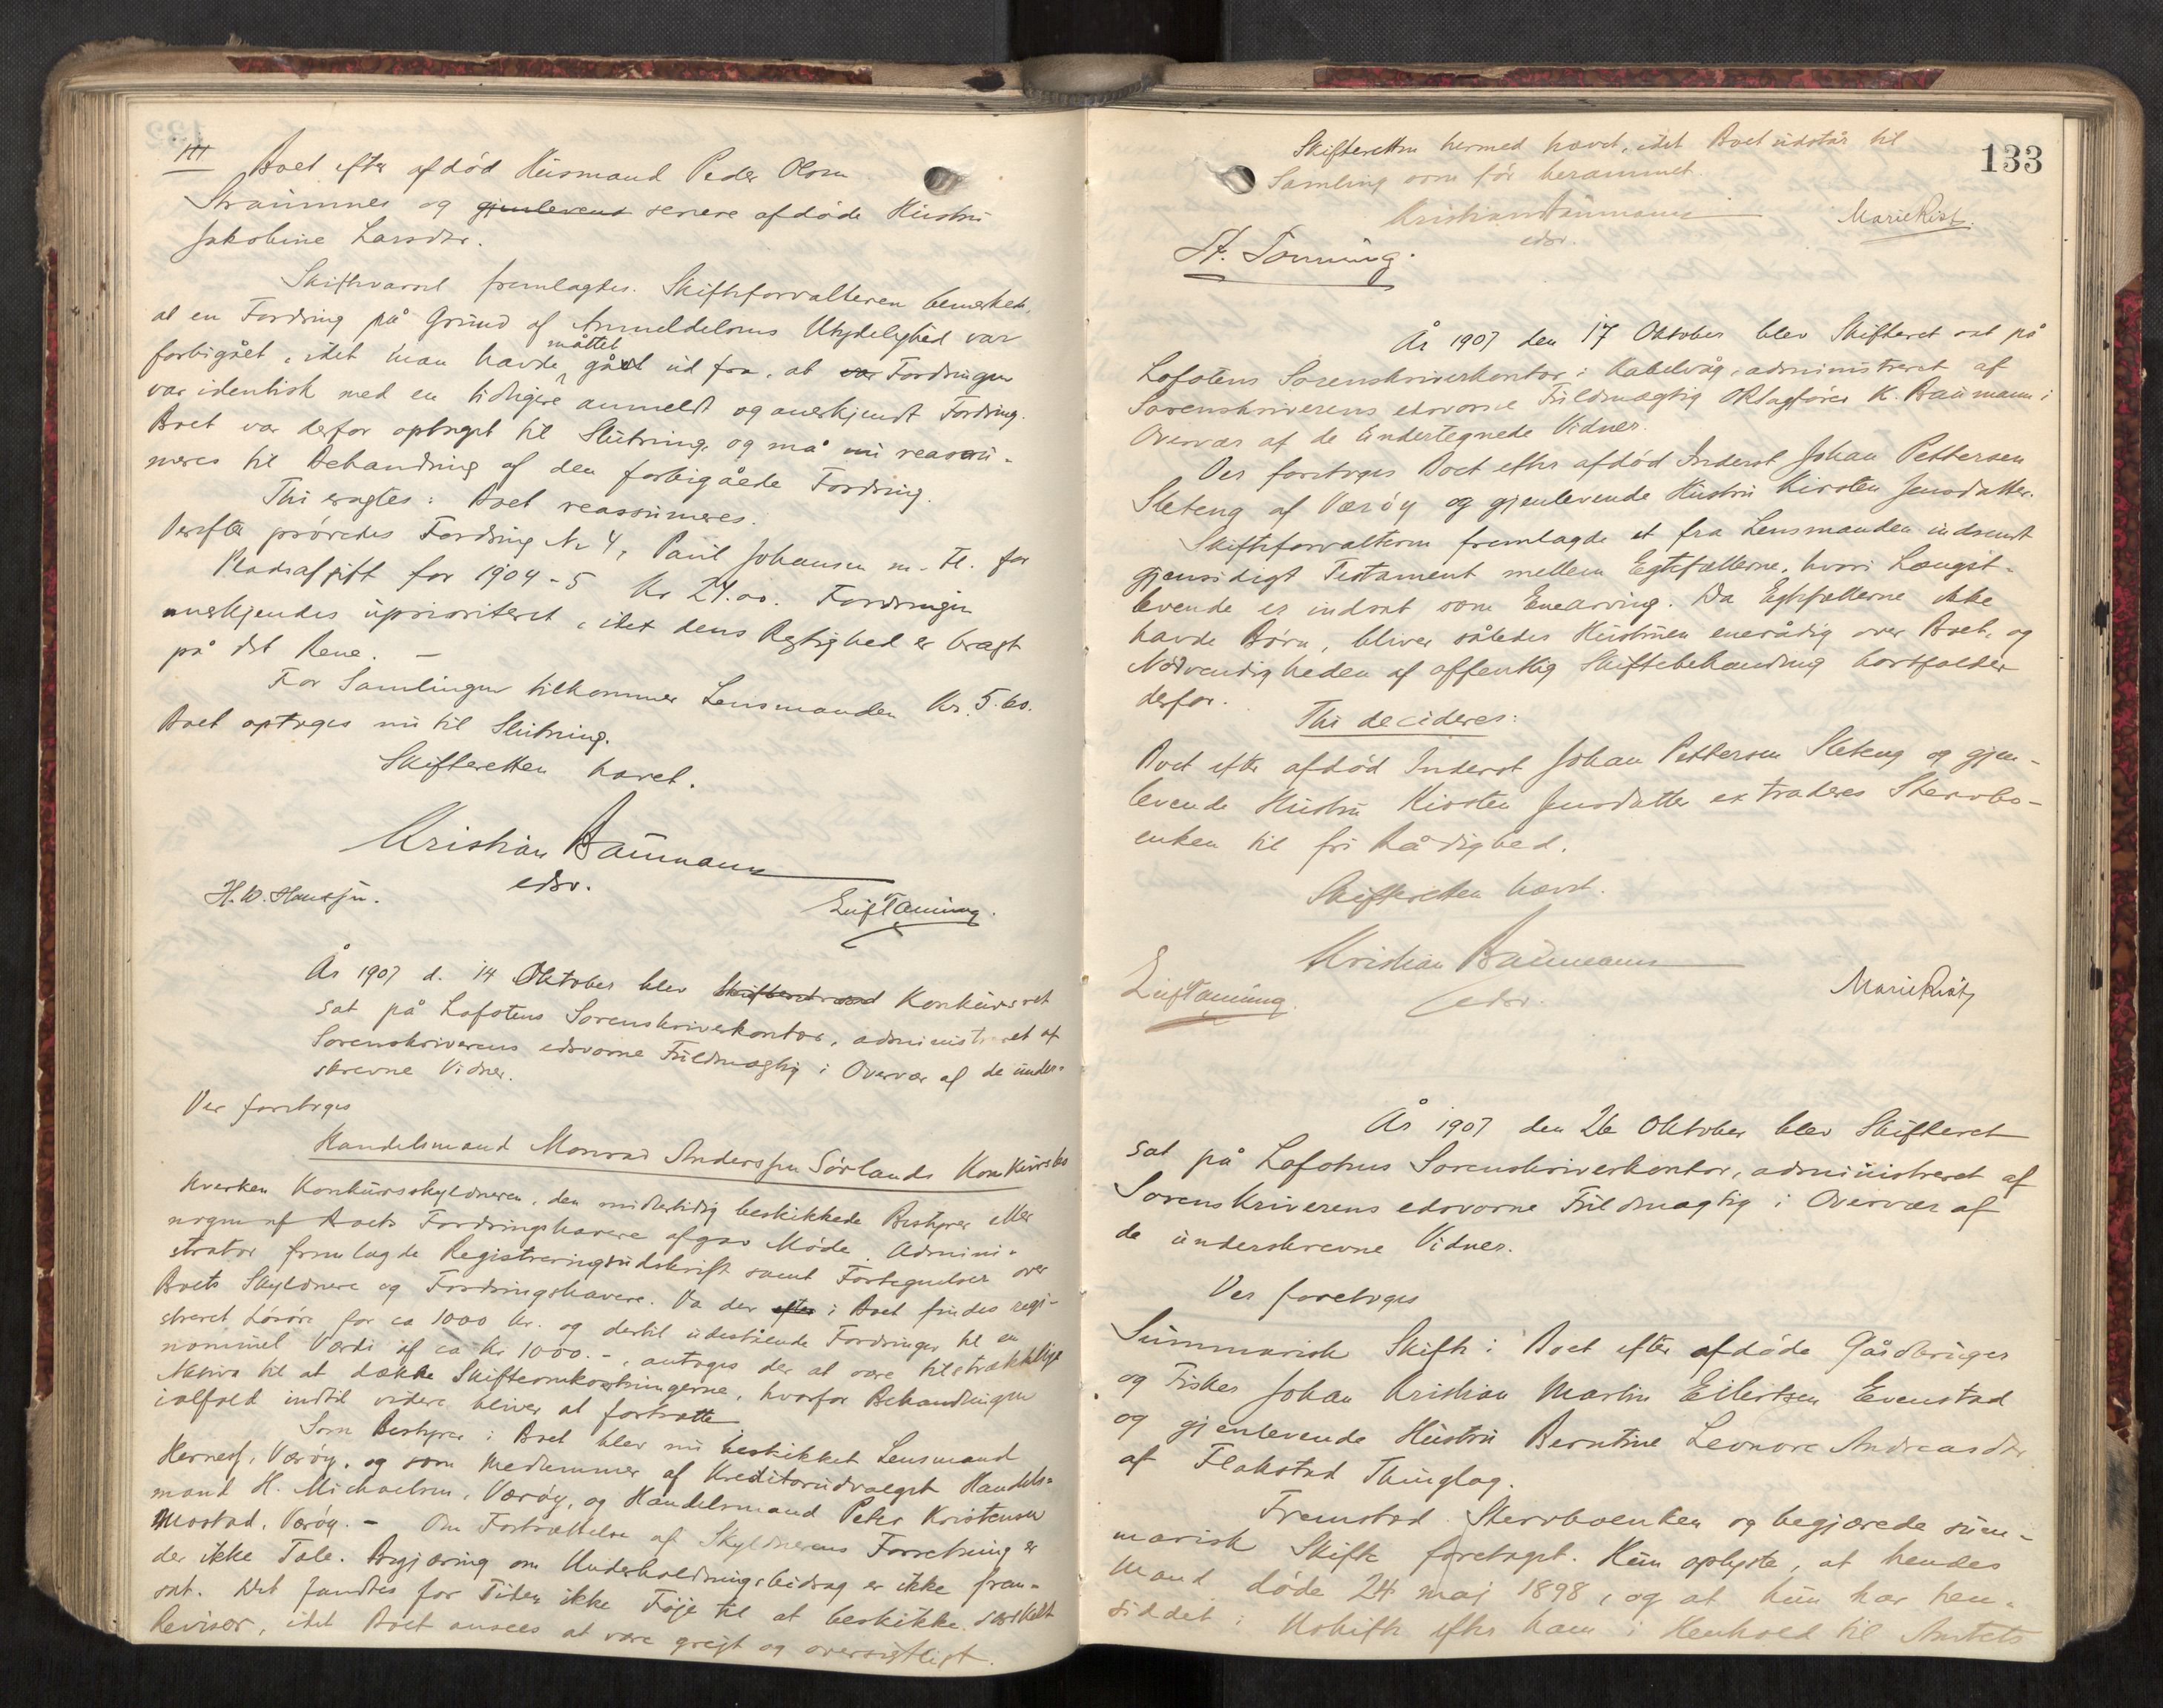 III Boet efter afdød Husmand Peder Olsen
Straumnes og gjenlevend senere afdøde Hustru
Jakobine Larsdtr.
Skiftevarsel fremlagdes. Skifteforvalteren bemerkede,
at en Fordring på Grund af Anmeldelsens Utydelighed var
forbigået, idet man havde måttet gået ud fra, at var Fordringen
var identisk med en tidligere anmeldt og anerkjendt Fordring.
Boet var derfor optaget til Slutning, og må nu reassu-
meres til Behandling af den forbigåede Fordring.
Thi eragtes: Boet reassumeres.
Derefter prøvedes Fordring No 4, Paul Johansen m. Fl. for
Pladsafgift for 1904-5 Kr 24.00. Fordringen
anerkjendes uprioriteret, idet dens Rigtighed er bragt
på det Rene. —
For Samlingen tilkommer Lensmanden Kr. 5.60.
Boet optoges nu til Slutning.
Skifteretten hævet.
Kristian Baumann
edsv.
H. W. Hanssen.
Leif Tønning.
År 1907 d. 14 Oktober blev Skifteret Konkursret
sat på Lofotens Sorenskriverkontor, administreret af
Sorenskriverens edsvorne Fuldmægtig i Overvær af de under-
skrevne Vidner.
Der foretoges
Handelsmand Monrad Anderssen Sørlands Konkursbo
Hverken Konkursskyldneren, den midlertidig beskikkede Bestyrer eller
nogen af Boets Fordringshavere afgav Møde. Admini-
strator fremlagde Registreringsudskrift samt Fortegnelser over
Boets Skyldnere og Fordringshavere. Da der efter i Boet findes regi-
streret Løsøre for ca 1000 Kr. og dertil udestående Fordringer til en
nominel Værdi af ca Kr 1000.-, antoges der at være tilstrækkelige
Aktiva til at dække Skifteomkostningerne, hvorfor Behandlingen
ialfald indtil videre bliver at fortsætte.
Som Bestyrer i Boet blev nu beskikket Lensmand
Hernes, Værøy, og som Medlemmer af Kreditorudvalget Handels-
mand H. Michaelsen, Værøy, og Handelsmand Peter Kristensen
Mostad, Værøy. - Om Fortsættelse af Skyldnerens Forretning er
der ikke Tale. Begjæring om Underholdningsbidrag er ikke frem-
sat. Det fandtes for Tiden ikke Føje til at beskikke særskilt
Revisor, idet Boet ansees at være greit og oversigtligt.
133
Skifteretten hermed hævet, idet Boet udstår til
Samling som før berammet.
Kristian Baumann
edsv.
Marie Rist.
St. Tønning.
År 1907 den 17 Oktober blev Skifteret sat på
Lofotens Sorenskriverkontor i Kabelvåg, administreret af
Sorenskriverens edsvorne Fuldmægtig ORsagfører K. Baumann i
Overvær af de undertegnede Vidner.
Der foretoges Boet efter afdød Inderst Johan Pettersen
Sleteng af Værøy og gjenlevende Hustru Kirsten Jensdatter.
Skifteforvalteren fremlagde et fra Lensmanden indsendt
gjensidigt Testament mellem Egtefællerne, hvori Længst-
levende er indsat som Enearving. Da Egtefællerne ikke
havde Børn, bliver således Hustruen enerådig over Boet, og
Nødvendigheden af offentlig Skiftebehandling bortfalder
derfor.
Thi decideres:
Boet efter afdød Inderst Johan Pettersen Sleteng og gjen-
levende Hustru Kirsten Jensdatter extraderes Stervbo-
enken til fri Rådighed.
Skifteretten hævet.
Kristian Baumann
edsv.
Leif Tønning.
Marie Rist
År 1907 den 26 Oktober blev Skifteret
sat på Lofotens Sorenskriverkontor, administreret af
Sorenskriverens edsvorne Fuldmægtig i Overvær af
de underskrevne Vidner.
Der foretoges
Summarisk Skifte i Boet efter afdøde Gårdbruger
og Fisker Johan Kristian Martin Eilertsen Evenstad
og gjenlevende Hustru Berntine Leonore Andreasdtr
af Flakstad Thinglag.
Fremstod Stervboenken og begjærede sum-
marisk Skifte foretaget. Hun oplyste, at hendes
Mand døde 24 maj 1898, og at hun har hen-
siddet i Uskifte efter ham i Henhold til Amtets